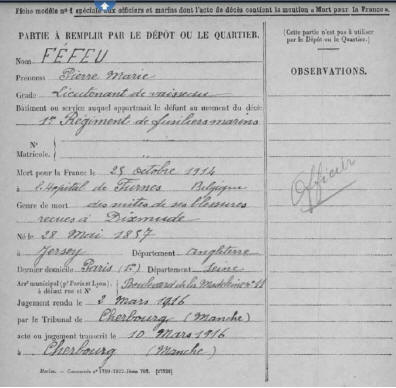 Fiche modèle nº 1 spéciale aux officiers et marins dont l'acte de décès contient la mention « Mort pour la France ».
PARTIE À REMPLIR PAR LE DÉPÔT OU LE QUARTIER.
Nom FÉFEU
Prénoms Pierre Marie
Grade Lieutenant de vaisseau
Bâtiment ou service auquel appartenait le défunt au moment du décès
1er Régiment de fusiliers marins
Nº
Matricule.
Mort pour la France le 25 octobre 1914
à l'Hôpital de Furnes Belgique
Genre de mort des suites de ses blessures
reçues à Dixmude
Né le 28 Mai 1857
à Jersey Département Angleterre
Dernier domicile Paris Département Seine
Arrt municipal (pr Paris et Lyon), à défaut rue et Nº Boulevard de la Madeleine nº
Jugement rendu le 2 Mars 1916
par le Tribunal de Cherbourg (Manche)
acte ou jugement transcrit le 10 Mars 1916
à Cherbourg (Manche)
(Cette partie n'est pas à utiliser par le Dépôt ou le Quartier.)
OBSERVATIONS.
Officier